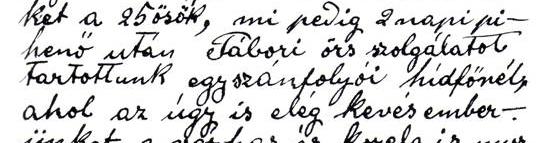 ket a 25ösök, mi pedig 2 napi pi-
henő után Tábori örs szolgálatot
tartottunk egy szánfolyói hídfőnél,
ahol az úgy is elég kevés ember-
ünket a